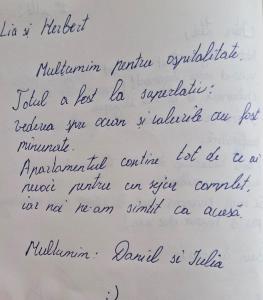 Lia și Herbert
Multumim pentru ospitalitate.
Totul a fost la superlativ:
vederea spre ocean și valurile au fost
minunate.
Apartamentul contine tot de ce ai
nevoie pentru un sejur complet,
iar noi ne-am simtit ca acasă.
Multumim: Daniel si Iulia
:)